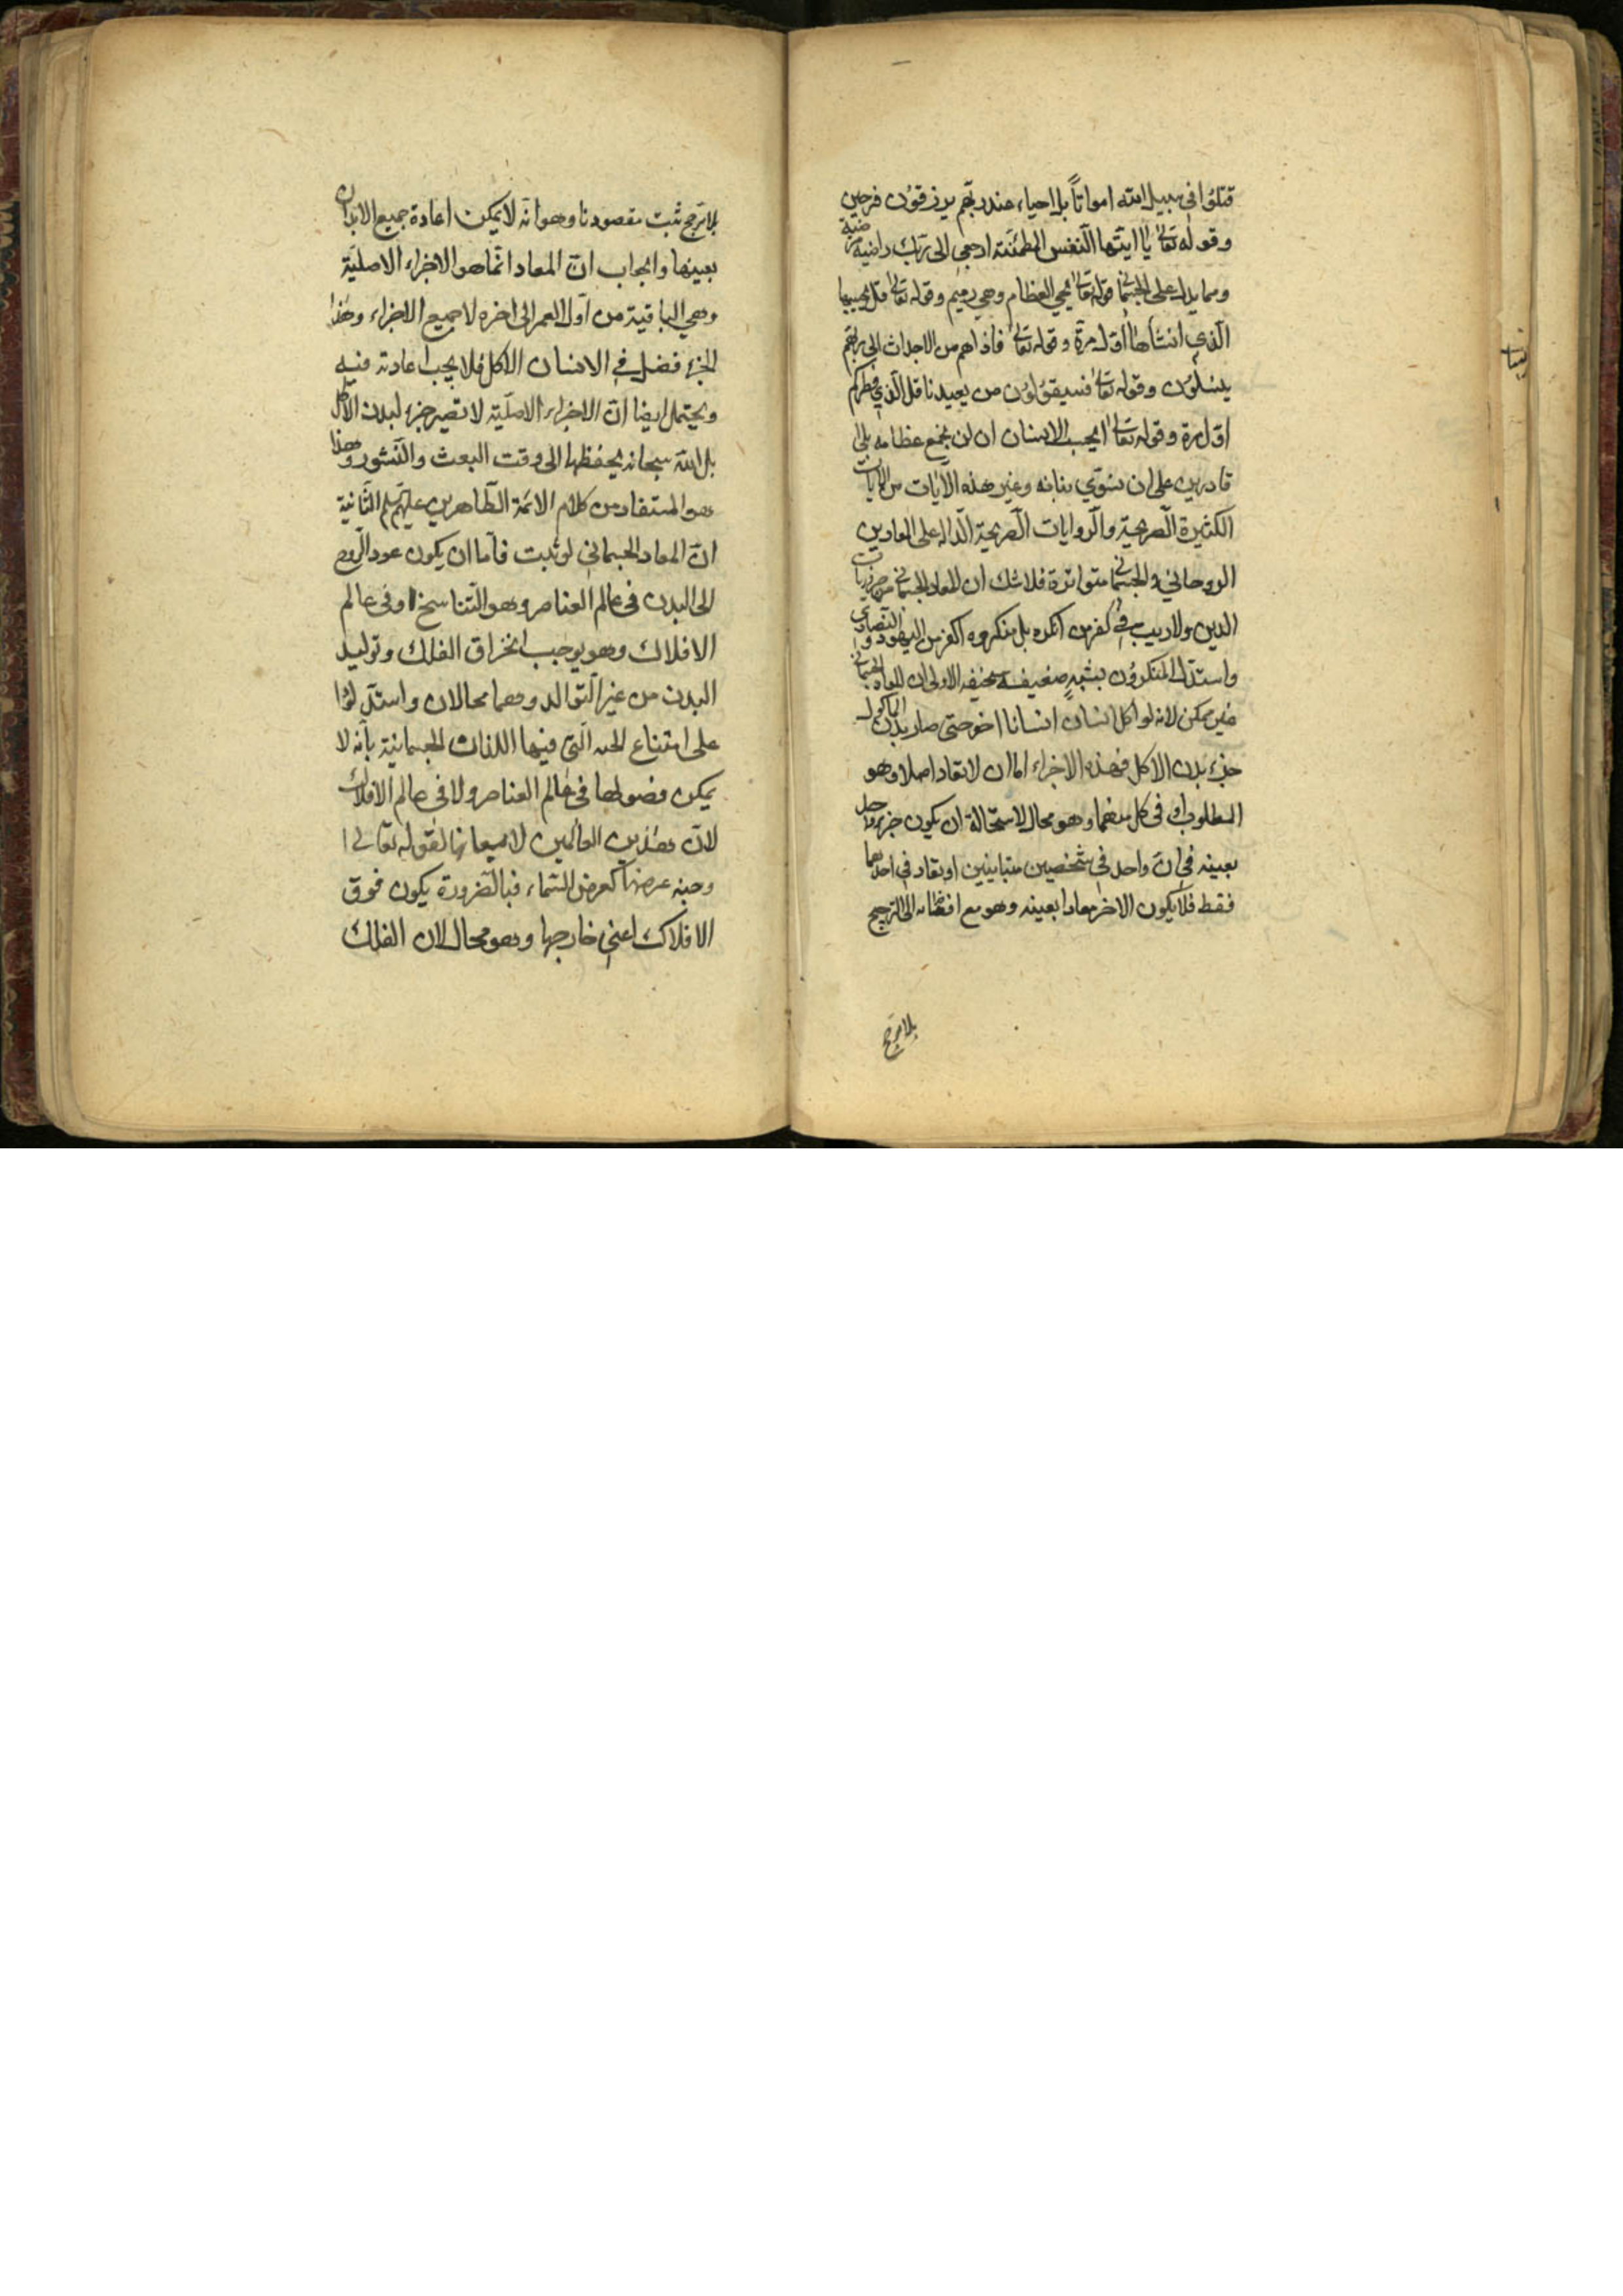 قتلوا في سبيل الله امواتاً بل احياء عند ربهم يرزقون فرحين
وقوله تعالى يا ايتها النفس المطمئنة ارجعي الى ربك راضية مرضية
ومما يدل على الجسماني قوله تعالى يحيي العظام وهي رميم وقوله تعالى قل يحييها
الذي انشأها اول مرة وقوله تعالى فاذا هم من الاجداث الى ربهم
ينسلون وقوله تعالى فسيقولون من يعيدنا قل الذي فطركم
اول مرة وقوله تعالى ايحسب الانسان ان لن نجمع عظامه بلى
قادرين على ان نسوي بنانه وغير هذه الآيات من الآيات
الكثيرة الصريحة والروايات الصريحة الدالة على المعادين
الروحاني والجسماني متواترة فلا شك ان المعاد الجسماني من ضروريات
الدين ولا ريب في كفر من انكره بل منكروه اكفر من اليهود والنصارى
واستدل المنكرون بشبه ضعيفة سخيفة الاولى ان المعاد الجسماني
غير ممكن لانه لو اكل انسان انسانا اخر حتى صار بدن المأكول
جزء بدن الآكل فهذه الاجزاء اما ان لا تعاد اصلا وهو
المطلوب او في كل منهما وهو محال لاستحالة ان يكون جزء واحد
بعينه في ان واحد في شخصين متباينين او تعاد في احدهما
فقط فلا يكون الاخر معادا بعينه وهو مع افضائه الى الترجيح
بلا مرجح
بلا مرجح ثبت مقصودنا وهو انه لا يمكن اعادة جميع الابدان
بعينها والجواب ان المعاد انما هو الاجزاء الاصلية
وهي الباقية من اول العمر الى اخره لا جميع الاجزاء وهذا
الجزء فضل في الانسان الاكل فلا يجب اعادته فيه
ويحتمل ايضا ان الاجزاء الاصلية لا تصير جزء لبدن الآكل
بل الله سبحانه يحفظها الى وقت البعث والنشور وهذا
هو المستفاد من كلام الائمة الطاهرين عليهم الثانية
ان المعاد الجسماني لو ثبت فاما ان يكون عود الروح
الى البدن في عالم العناصر وهو التناسخ او في عالم
الافلاك وهو يوجب انخراق الفلك وتوليد
البدن من غير التوالد وهما محالان واستدلوا
على امتناع الجنة التي فيها اللذات الجسمانية بانه لا
يمكن في عالم العناصر ولا في عالم الافلاك
لان هذين العالمين لا يسعانها لقوله تعالى
وجنة عرضها كعرض السماء فبالضرورة يكون فوق
الافلاك اعني خارجها وهو محال لان الفلك